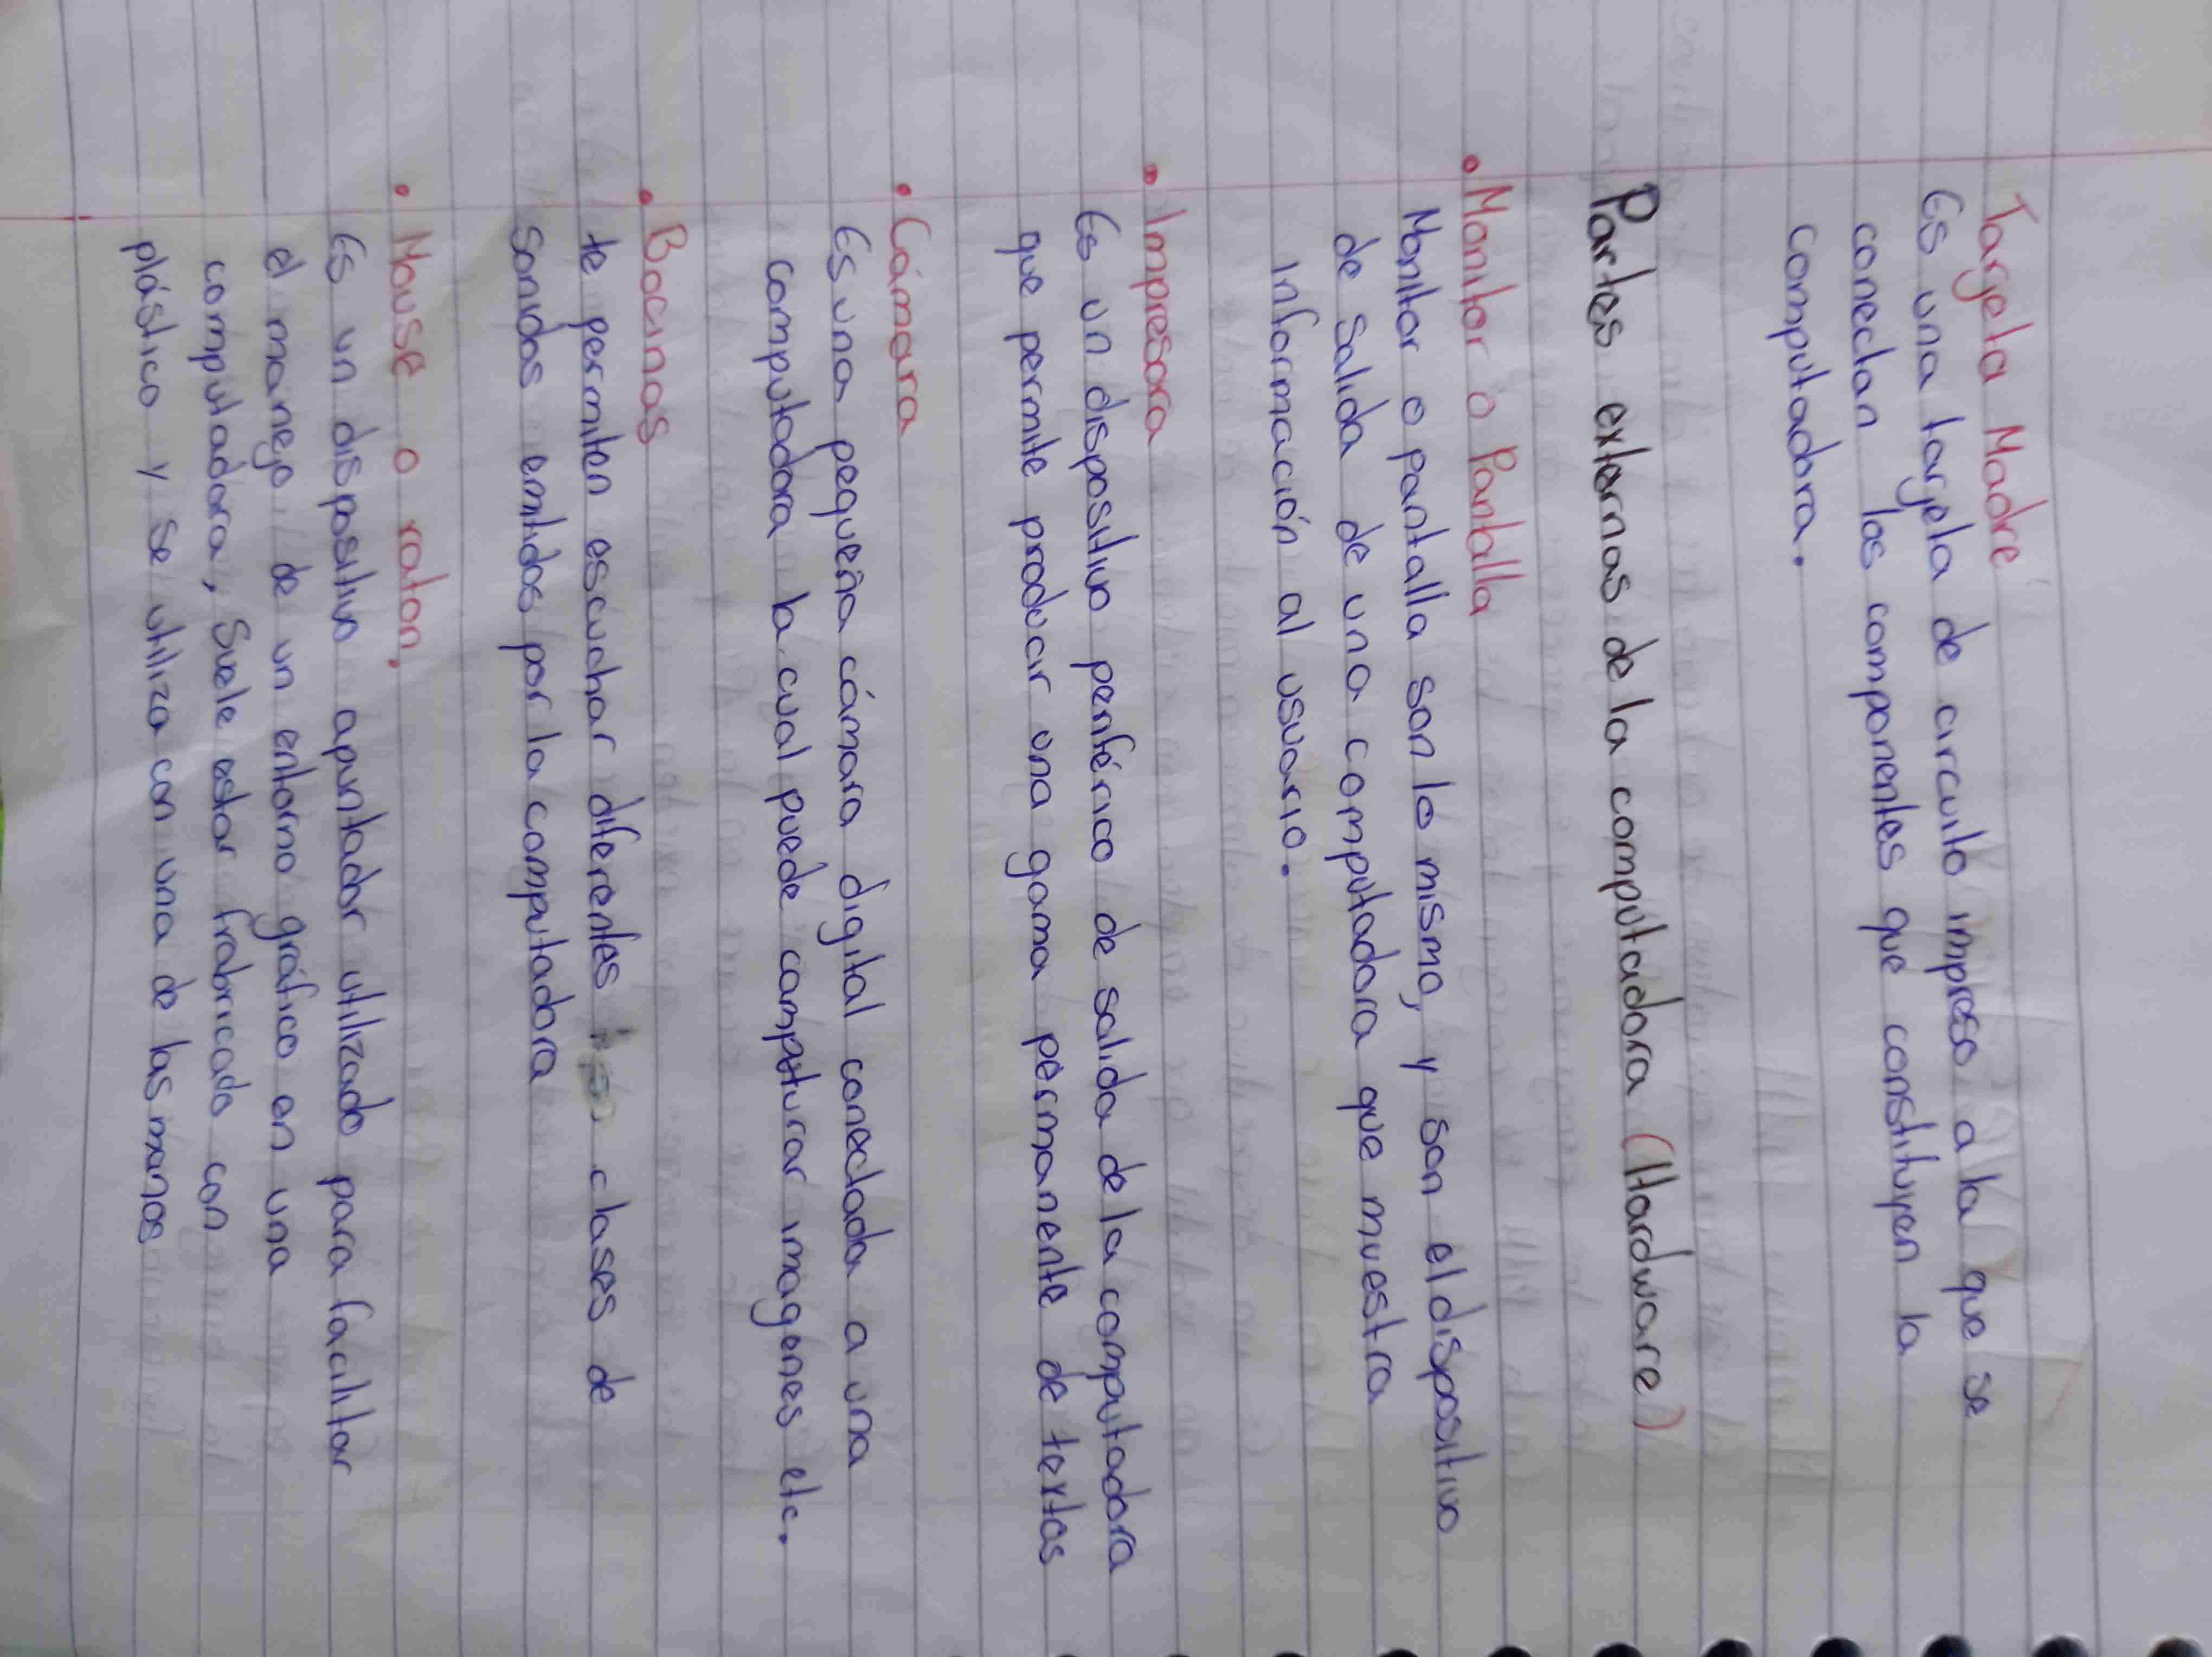 Tarjeta Madre
Es una tarjeta de circuito impreso a la que se
conectan los componentes que constituyen la
computadora.
Partes externas de la computadora (Hardware)
• Monitor o Pantalla
Monitor o pantalla son lo mismo, y son el dispositivo
de salida de una computadora que muestra
información al usuario.
• Impresora
Es un dispositivo periférico de salida de la computadora
que permite producir una gama permanente de textos
• Cámara
Es una pequeña cámara digital conectada a una
computadora la cual puede compturar imagenes etc.
• Bocinas
te permiten escuchar diferentes clases de
sonidos emitidos por la computadora
• Mouse o raton.
Es un dispositivo apuntador utilizado para facilitar
el manejo de un entorno gráfico en una
computadora, Suele estar frabricado con
plástico y se utiliza con una de las manos